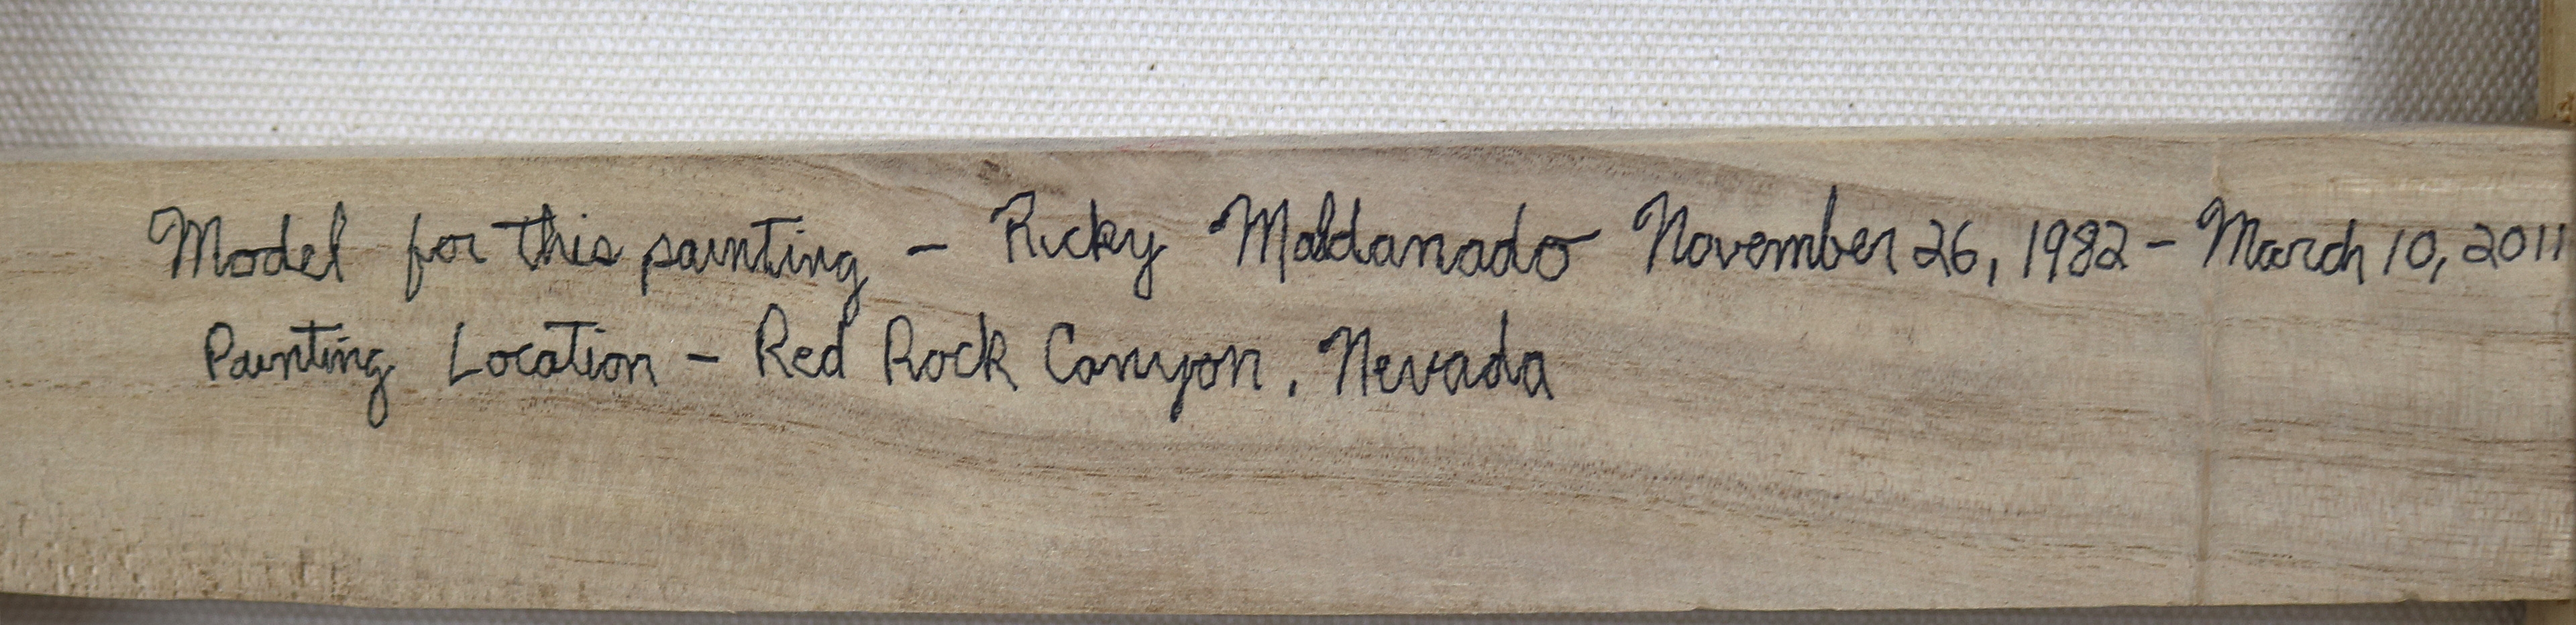 Model for this painting - Ricky Maldanado November 26, 1982 - March 10, 2011
Painting Location - Red Rock Canyon, Nevada